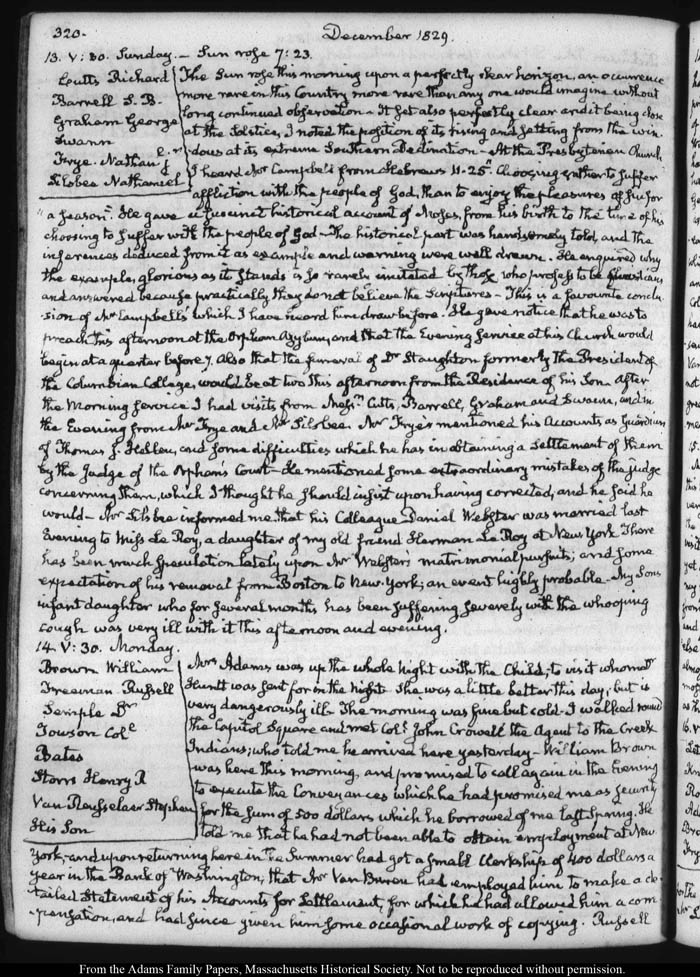 320.
December 1829.
13. V: 30. Sunday. – Sun rose 7: 23.
Cutts Richard
Barrell S. B.
Graham George
Swann
Frye. Nathan. Jr
Silsbee Nathaniel
The Sun rose this morning upon a perfectly clear horizon, an occurrence
more rare in this Country more rare than any one would imagine without
long continued observation – It set also perfectly clear and it being close
at the Solstice, I noted the position of its rising and setting from the win-
dows at its extreme Southern Declination – At the Presbyterian Church
I heard Mr Campbell from Hebrews 11. 25. "Choosing rather to suffer
affliction with the people of God, than to enjoy the pleasures of sin for
"a season". He gave a succinct historical account of Moses, from his birth to the time of his
choosing to suffer with the people of God – The historical part was handsomely told, and the
inferences deduced from it as example and warning were well drawn. He enquired why
the example, glorious as it stands is so rarely imitated by those who profess to be Christians
and answered because practically they do not believe the Scriptures – This is a favourite conclu-
sion of Mr Campbell's which I have heard him draw before. He gave notice that he was to
preach this afternoon at the Orphan Asylum, and that the Evening service at his Church would
begin at a quarter before 7. Also that the funeral of Dr Staughton formerly the President of
the Columbian College, would be at two this afternoon from the Residence of his Son. After
the Morning service I had visits from Messrs Cutts, Barrell, Graham and Swann, and in
the Evening from Mr Frye and Mr Silsbee. Mr Frye mentioned his Accounts as Guardian
of Thomas J. Hellen, and some difficulties which he has in obtaining a settlement of them
by the Judge of the Orphan's Court – He mentioned some extraordinary mistakes of the Judge
concerning them, which I thought he should insist upon having corrected, and he said he
would – Mr Silsbee informed me that his Colleague Daniel Webster was married last
Evening to Miss Le Roy, a daughter of my old friend Herman Le Roy at New York There
has been much speculation lately upon Mr Webster's matrimonial pursuits; and some
expectation of his removal from Boston to New-York; an event highly probable – My Sons
infant daughter who for several months has been suffering severely with the whooping
cough was very ill with it this afternoon and evening.
14. V: 30. Monday.
Brown William
Freeman Russell
Semple Dr
Towson Cole
Bates
Storrs Henry R
Van Rensselaer Stephen
His Son
Mrs Adams was up the whole Night with the Child, to visit whom Dr
Huntt was sent for in the Night She was a little better this day, but is
very dangerously ill – The morning was fine but cold – I walked round
the Capitol Square and met Coll John Crowell the Agent to the Creek
Indians; who told me he arrived here yesterday – William Brown
was here this morning, and promised to call again in the Evening
to execute the Conveyances which he had promised me as security
for the sum of 500 dollars which he borrowed of me last Spring. He
told me that he had not been able to obtain employment at New
York, and upon returning here in the Summer had got a small Clerkship of 400 dollars a
year in the Bank of Washington, that Mr Van Buren had employed him to make a de-
tailed statement of his Accounts for settlement, for which he had allowed him a com-
-pensation, and had since given him some occasional work of copying. Russell
From the Adams Family Papers, Massachusetts Historical Society. Not to be reproduced without permission.